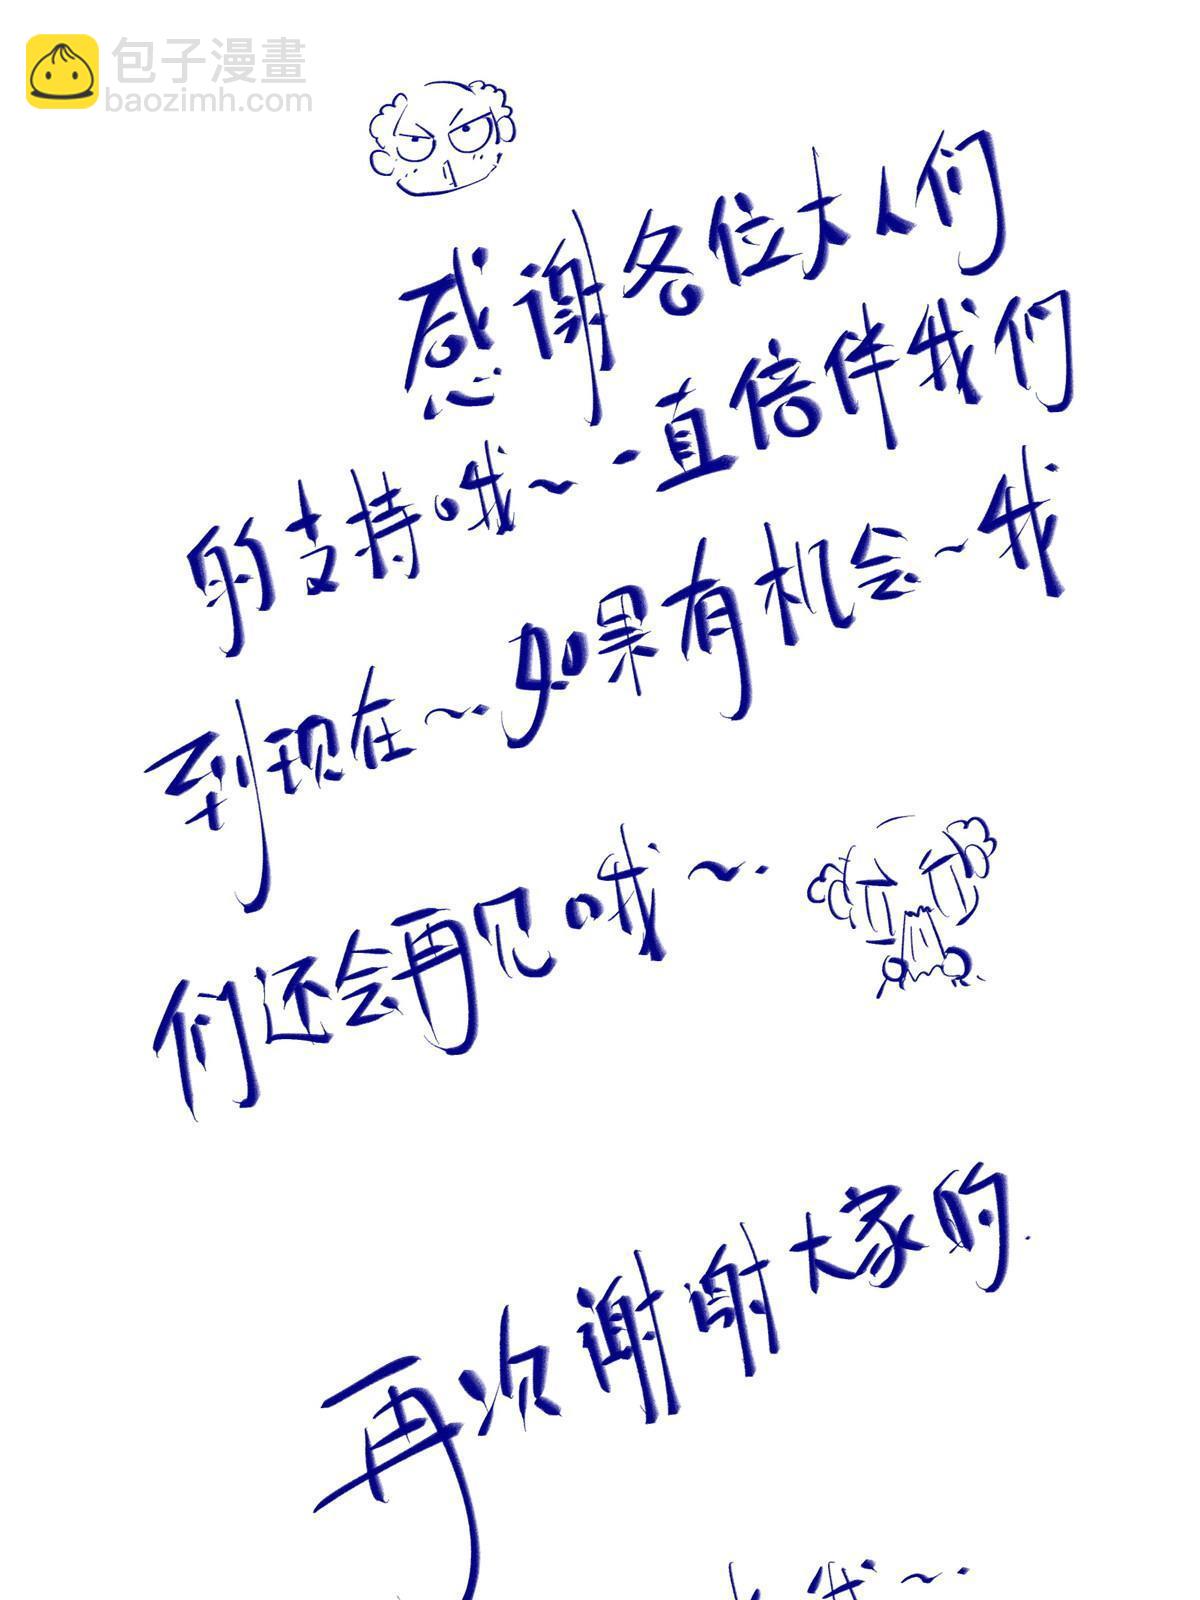 包子漫畫
baozimh.com
感谢各位大人们
的支持哦~一直陪伴我们
到现在~如果有机会~我
们还会再见哦~
再次谢谢大家的